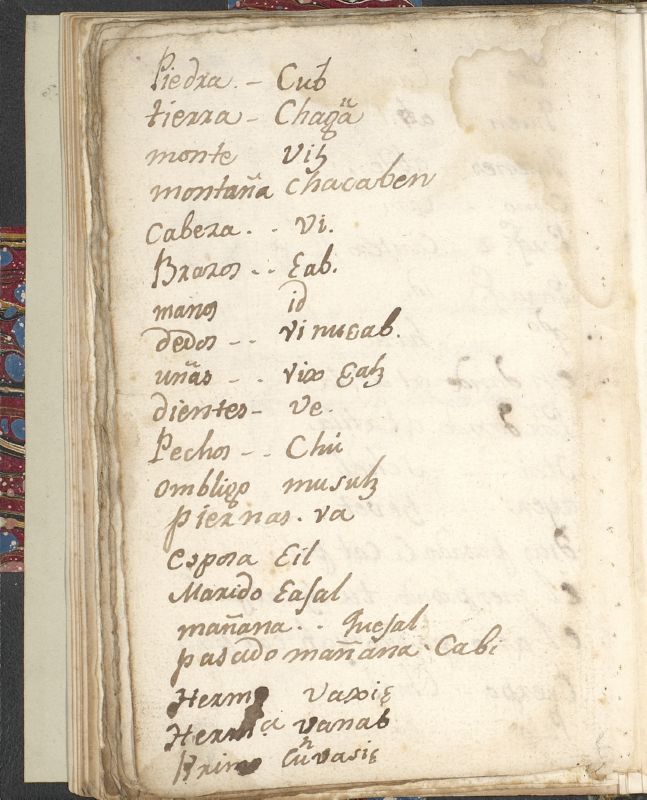 Piedra. - Cub
tierra - Chagüa
monte viꜩ
montaña chacaben
Cabeza . . vi.
Brazos . . Ɛab.
manos id
dedos - - vi nuƐab.
uñas - . vix Ɛaꜩ
dientes - ve.
Pechos - - Chú
ombligo musuꜩ
piernas. va
esposa Ɛil
Marido Ɛasal
mañana . . quesal
pasado mañana. Cabi
Hermo vaxiƐ
Herma vanab
Primo vasiƐ